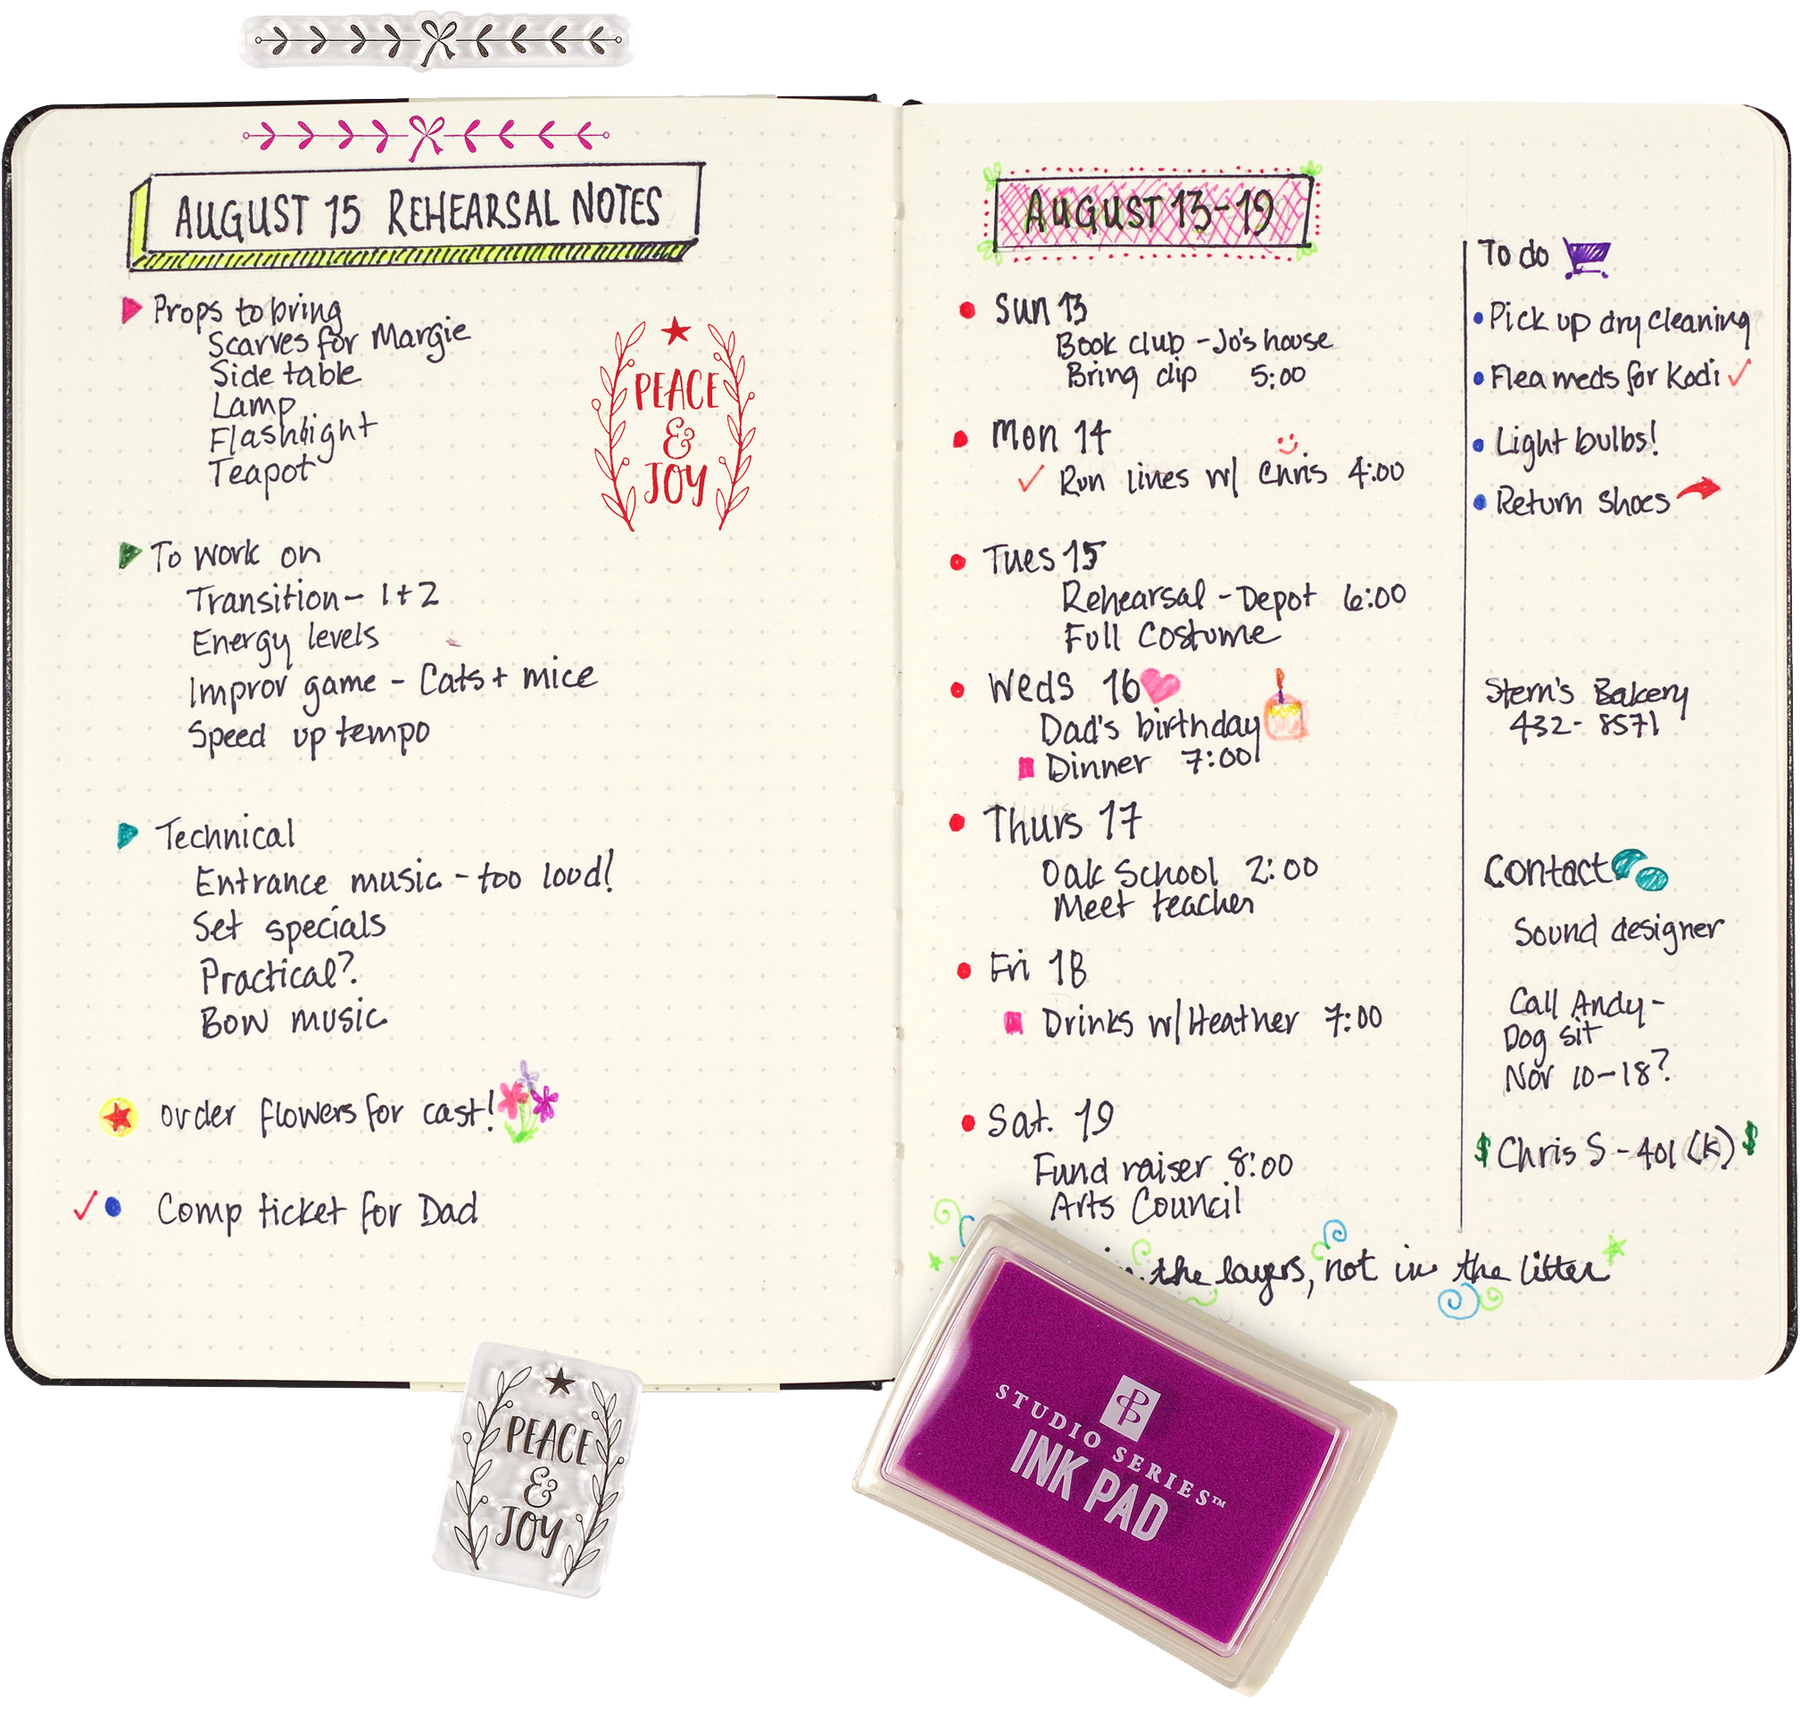 AUGUST 15 REHEARSAL NOTES
Props to bring
Scarves for Margie
Side table
Lamp
Flashlight
Teapot
PEACE
&
JOY
To work on
Transition - 1+2
Energy levels
Improv game - Cats + mice
Speed up tempo
Technical
Entrance music - too loud!
Set specials
Practical?
Bow music
order flowers for cast!
Comp ticket for Dad
AUGUST 13-19
Sun 13
Book club - Jo's house
Bring dip 5:00
Mon 14
Run lines w/ Chris 4:00
Tues 15
Rehearsal - Depot 6:00
Full Costume
Weds 16
Dad's birthday
Dinner 7:00
Thurs 17
Oak School 2:00
Meet teacher
Fri 18
Drinks w/ Heather 7:00
Sat. 19
Fund raiser 8:00
Arts Council
the layers, not in the litter
To do
Pick up dry cleaning
Flea meds for Kodi
Light bulbs!
Return shoes
Stern's Bakery
432-8571
Contact
Sound designer
Call Andy -
Dog sit
Nov 10-18?
$ Chris S - 401 (K) $
PEACE
&
JOY
STUDIO SERIES™
INK PAD